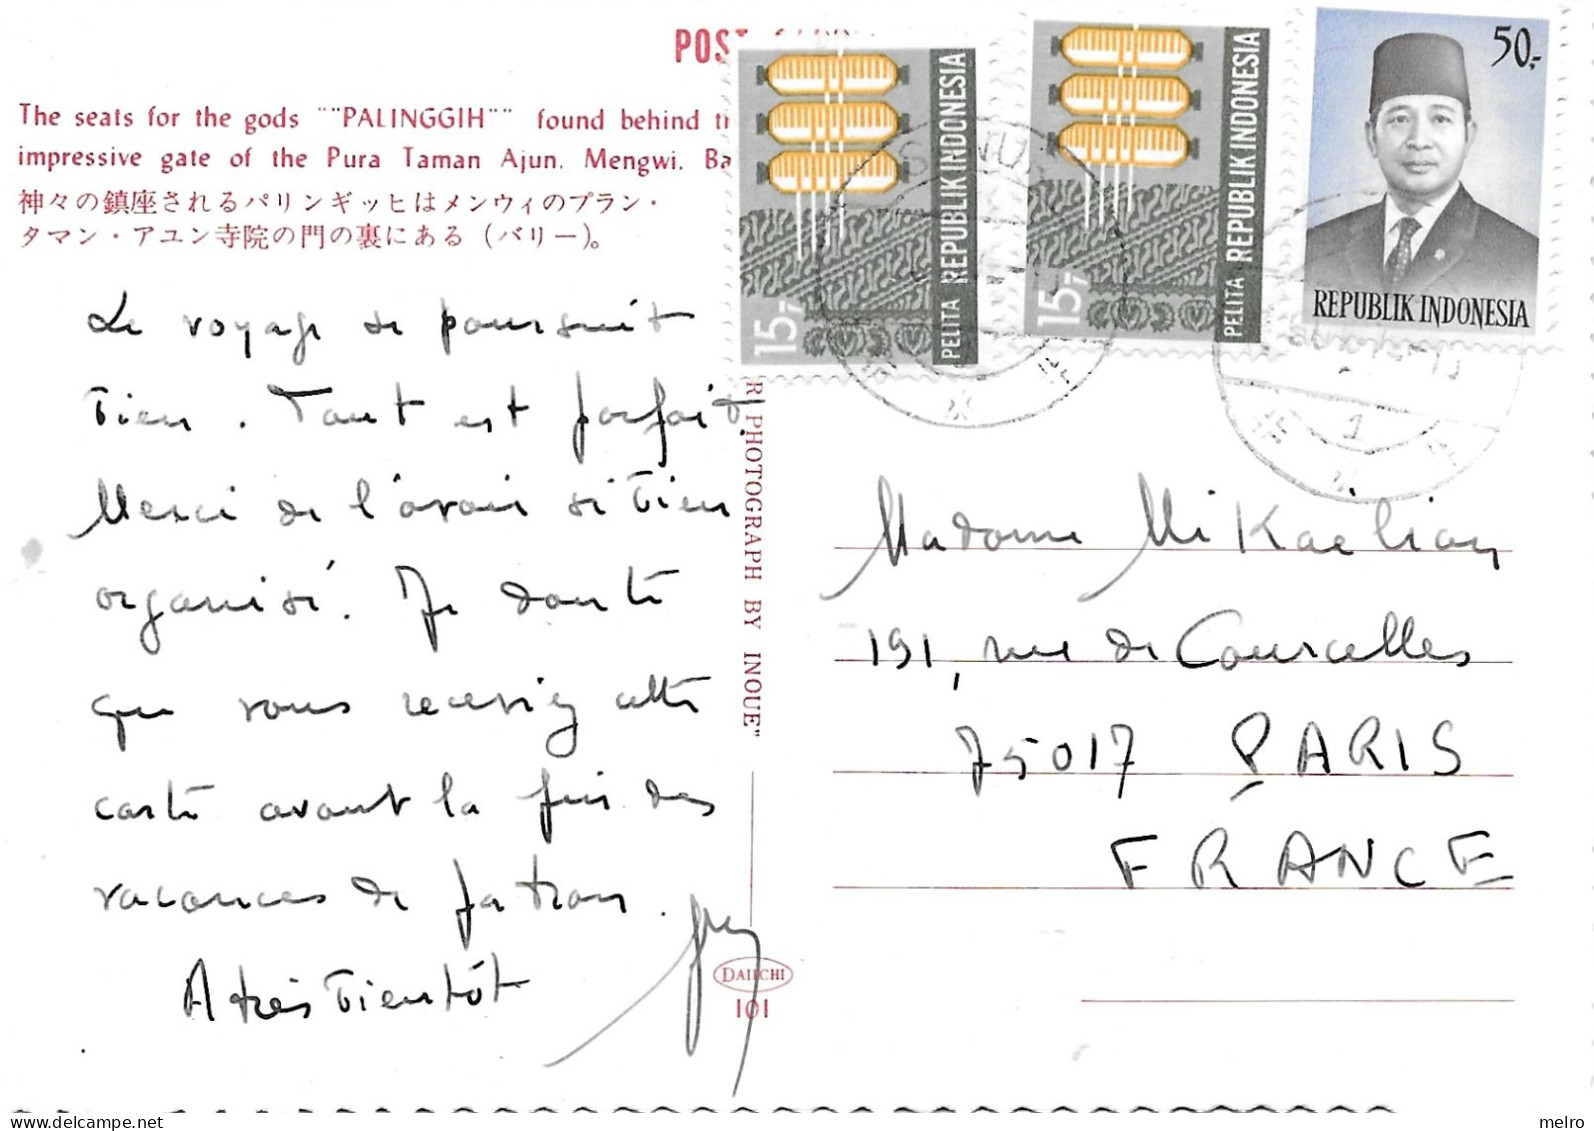 POST
The seats for the gods ""PALINGGIH"" found behind
impressive gate of the Pura Taman Ajun. Mengwi. Ba
神々の鎮座されるパリンギッヒはメンウィのプラン・
タマン・アユン寺院の門の裏にある (バリー)。
Le voyage se poursuit
bien. Tout est parfait.
Merci de l'avoir si bien
organisé. Je doute
que vous receviez cette
carte avant la fin des
vacances de
A très bientôt
R PHOTOGRAPH BY INOUE"
DAIICHI
101
15,-
PELITA REPUBLIK INDONESIA
15,-
PELITA REPUBLIK INDONESIA
50,-
REPUBLIK INDONESIA
1
Madame Mikaëlian
191, rue de Courcelles
75017 PARIS
FRANCE
melro